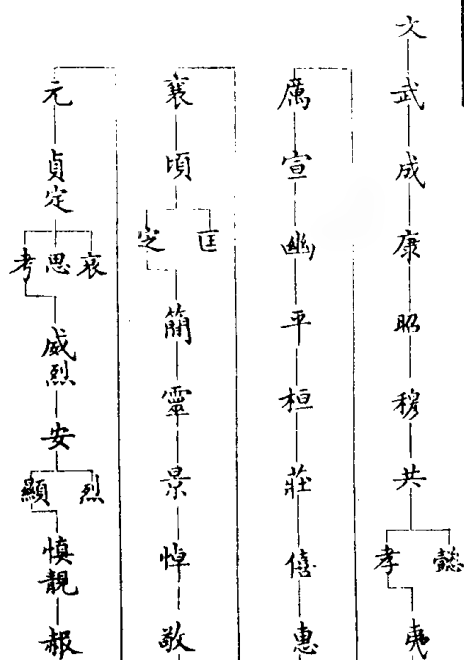 文武成康昭穆共
懿
孝
夷
厲宣幽平桓莊僖惠
襄頃
匡
定
簡靈景悼敬
元貞定
哀
思
考
威烈安
烈
顯
慎靚赧